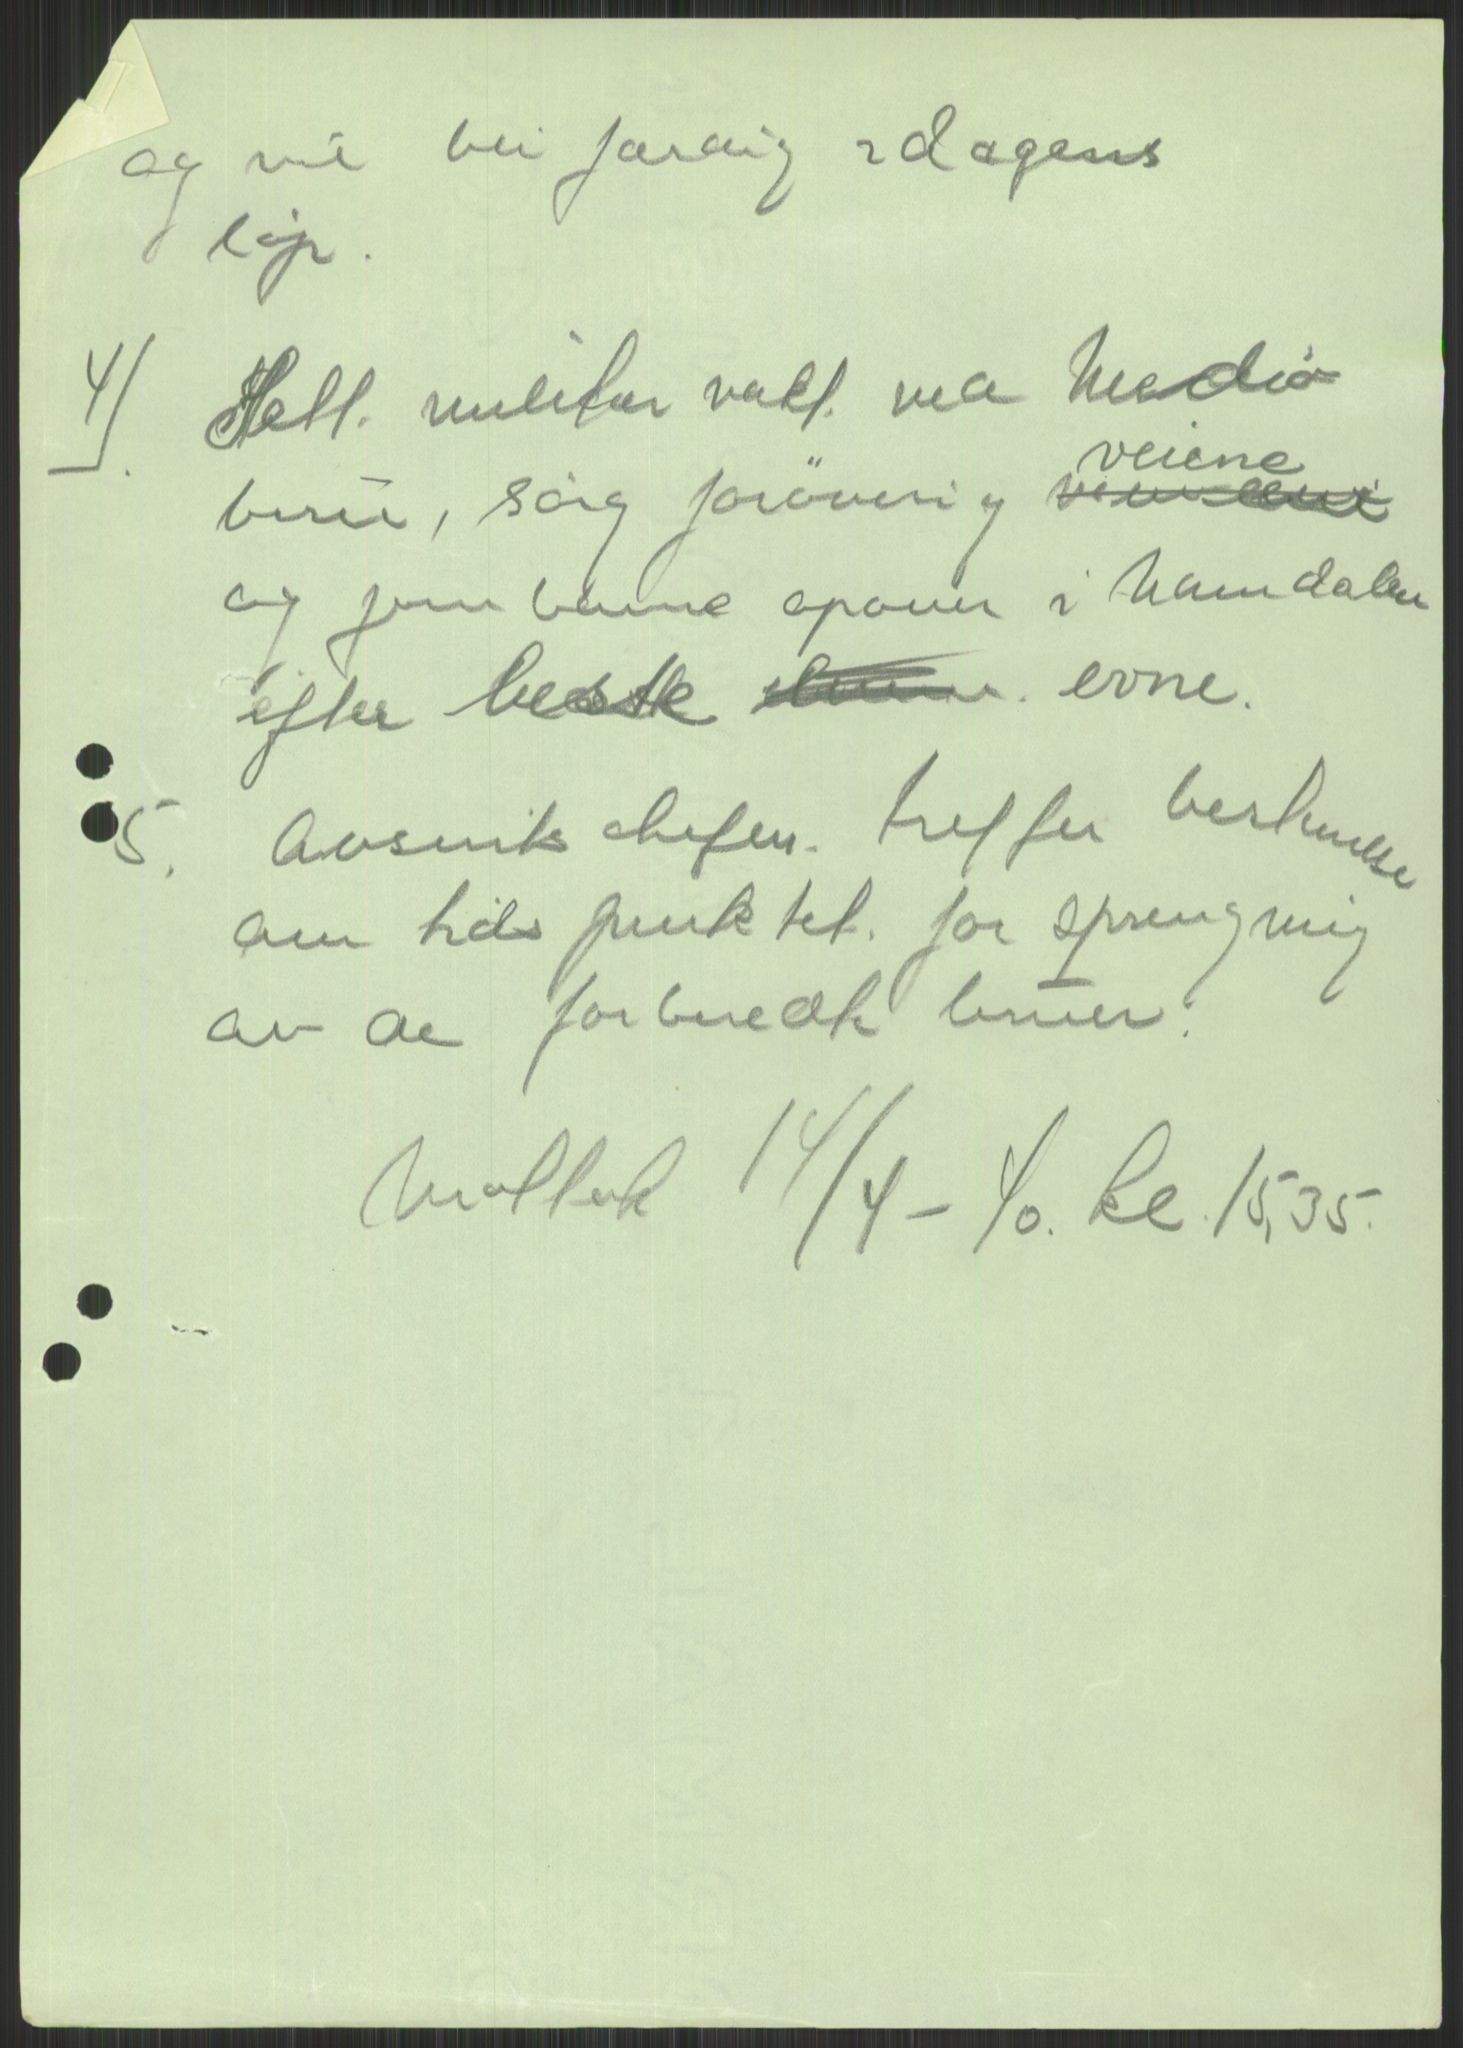 og vil bli færdig i dagens
løp.
4/. Hell. militær vakt. ved Medjå
bru, sørg forøvrig veiene
og jernbanne oppover i Namdalen
efter beste evne.
5. Avsnits chefen. treffer bestemmelse
om tids punktet. for sprengning
av de forberedte bruer.
14/4 – 40. kl. 15,35.